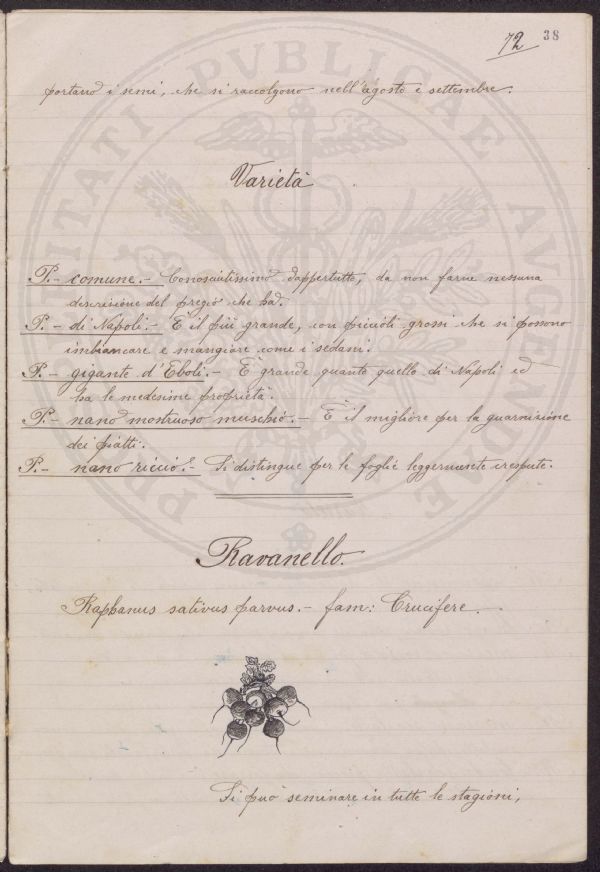 72 38
portano i semi, che si raccolgono nell'agosto e settembre.
Varietà
P.- comune.- Conosciutissimo dappertutto, da non farne nessuna
descrizione del pregio che ha.
P.- di Napoli.- È il più grande, con piccioli grossi che si possono
imbiancare e mangiare come i sedani.
P.- gigante d'Eboli.- È grande quanto quello di Napoli ed
ha le medesime proprietà.
P.- nano mostruoso muschio.- È il migliore per la guarnizione
dei piatti.
P.- nano riccio.- Si distingue per le foglie leggermente crespate.
Ravanello.
Raphanus sativus parvus.- fam: Crucifere.
Si può seminare in tutte le stagioni,
PUBLICAE
UTILITATI
AVGENDAE